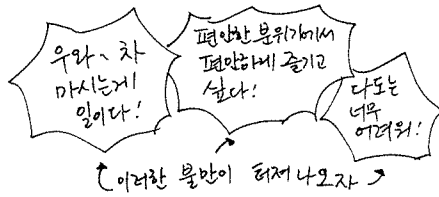 우와~ 차
마시는게
일이다!
편안한 분위기에서
편안하게 즐기고
싶다!
다도는
너무
어려워!
이러한 불만이 터져나오자